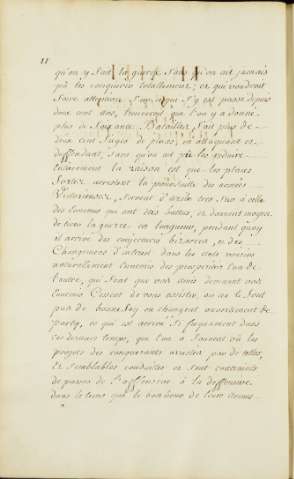 11
qu'on y fait la guerre sans qu'on ait jamais
pû les conquerir totallement; et qui voudroit
faire attention à ce qui s'y est passé depuis
deux cent ans, trouveroit que l'on y a donné
plus de soixante Batailles, fait plus de
deux cent sieges de places, en attaquant et
deffendant, sans qu'on ait pû les reduire
entierement la raison est que les places
fortes arrestant la poursuitte des armées
Victorieuses, servent d'azile tres seur à celles
des ennemis qui ont été battus, et donnent moyen
de tirer la guerre en longueur, pendant quoy
il arrive des conjectures bizarres, et des
Changemens d'interest dans les etats voisins
naturellement Ennemis des prosperitez l'un de
l'autre, qui font que vos amis devenant vos
Ennemis Cessent de vous assister, ou ne le font
pas de bonne foy ou changent ouvertement de
party, ce qui est arrivé si frequament dans
ces derniers temps, que l'on a souvent vû les
projets des conquerants arrestez par de telles
et semblables conduites et sont contraints
de passer de l'offensive à la deffensive
dans le tems que le bonheur de leurs armes